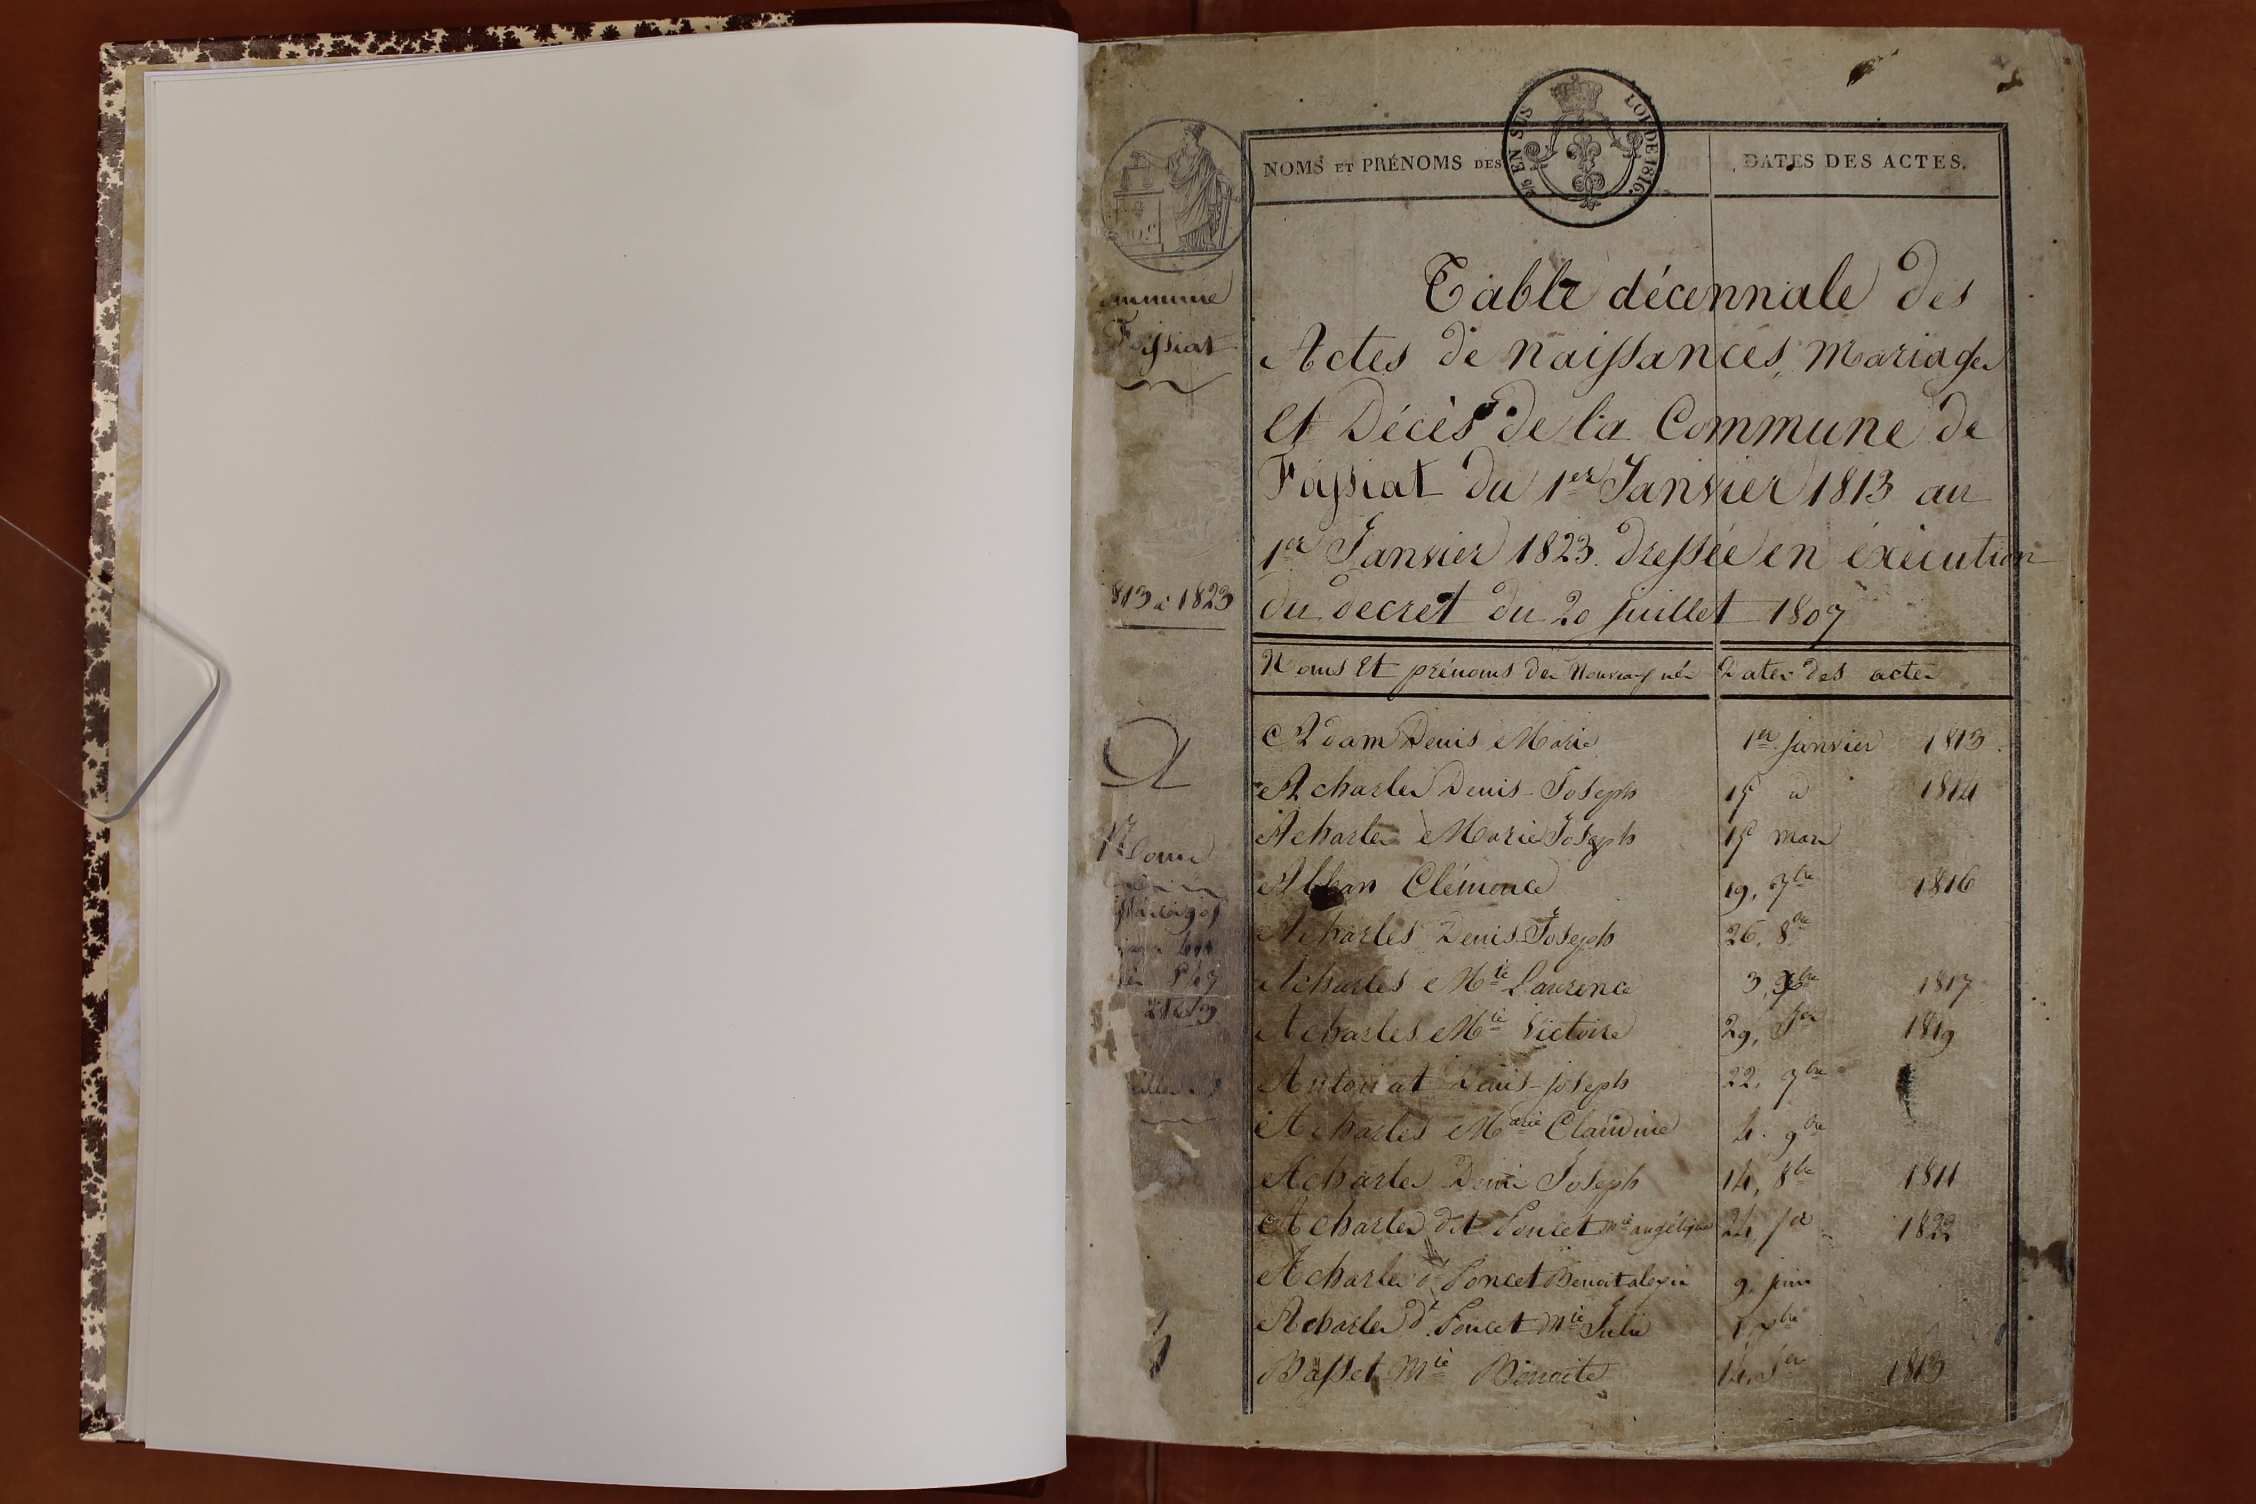 NOMS ET PRÉNOMS DES
25 EN SUS
LOI DE 1816.
DATES DES ACTES.
Table décennale des
Actes de naissances, mariages
et Décès de la Commune de
Foissiat du 1er Janvier 1813 au
1er Janvier 1823. dressée en éxécution
du decret du 20 juillet 1807
ommune
Foissiat
813 à 1823
Noms et prénoms des Nouveaux nés
Dates des actes
A
Adam Denis Marie 1er janvier 1813
Acharles Denis-Joseph 15 d 1814
Acharles Marie Joseph 15 mars
Clémence 19, 7bre 1816
Acharles Denis-Joseph 26, 8bre
Acharles Mie Laurence 3, 1817
Acharles Mie Victoire 29, 1819
Antoniat Denis-joseph 22, 7bre
Acharles Marie Claudine 4. 9bre
Acharles Denis Joseph 14, 8bre
Acharles dit Poncet Mie angélique 24, 1822
Acharles dt Poncet Benoit alexis 9. juin
Acharles dt. Poncet Mie Julie
Basset Mie Benoite 14, 1813